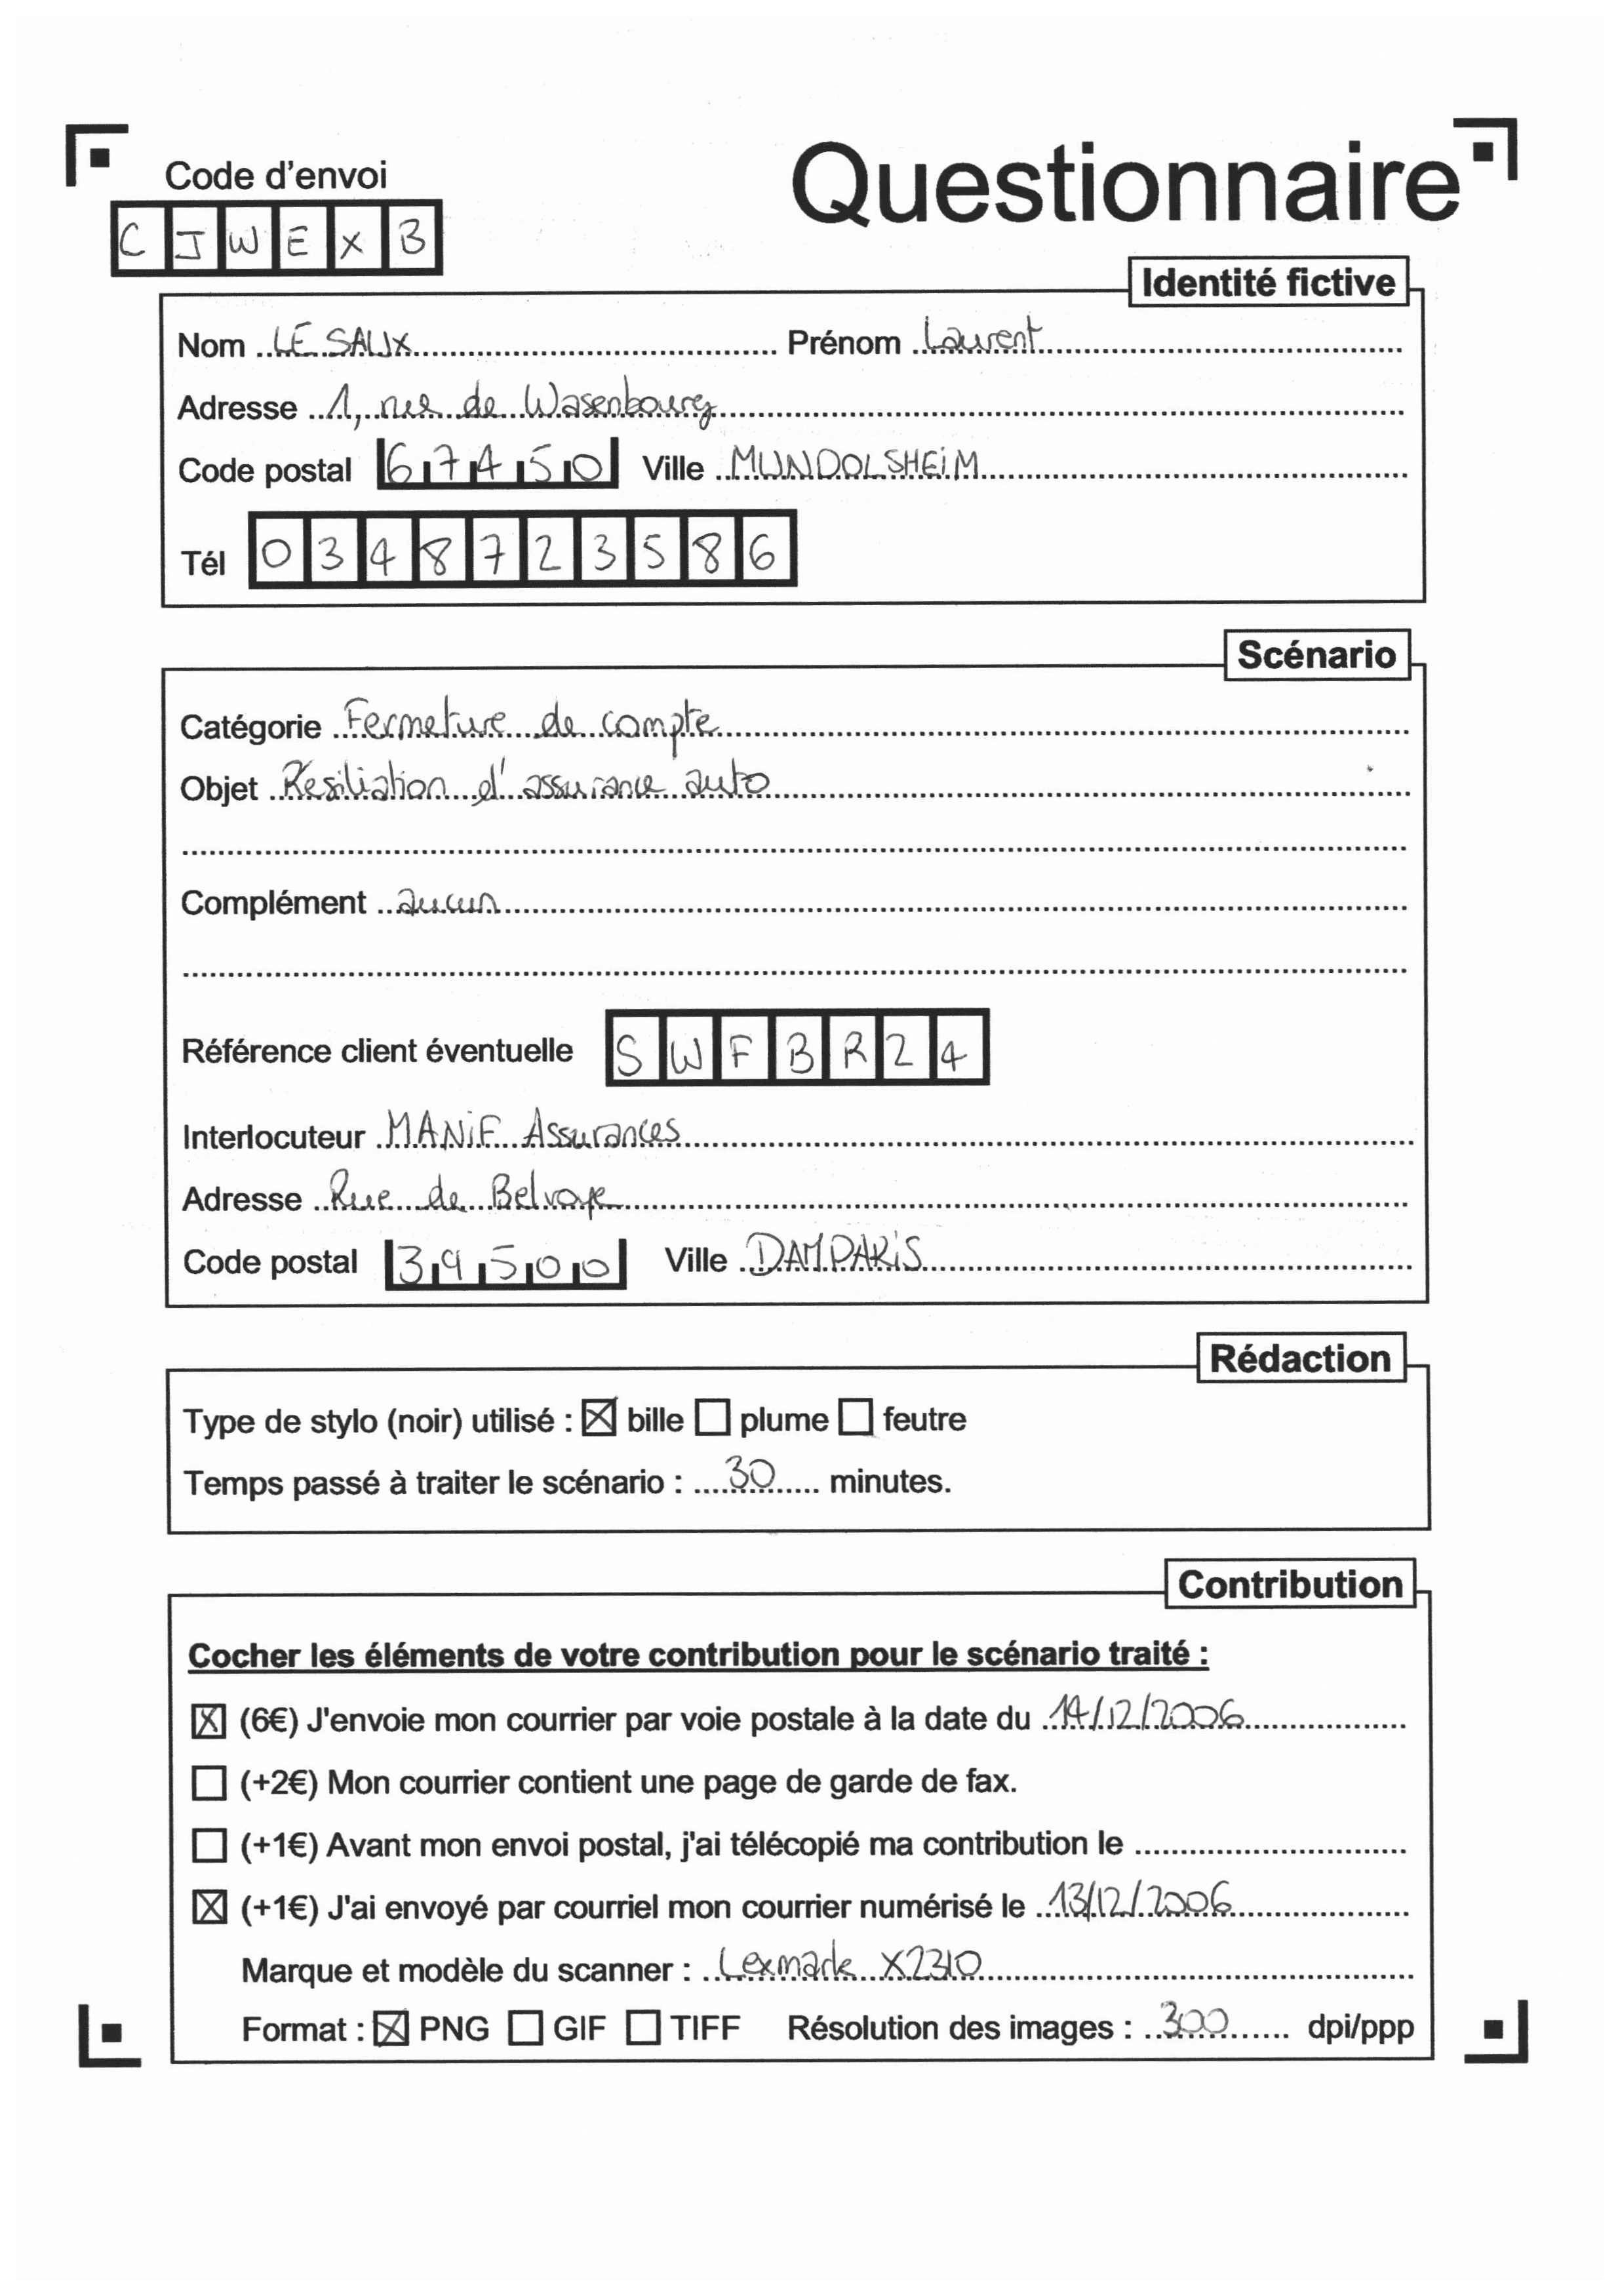 Code d'envoi
Questionnaire
C J W E X B
Identité fictive
Nom LE SAUX Prénom Laurent
Adresse 1, rue de Wasenbourg
Code postal 67450 Ville MUNDOLSHEIM
Tél 0348723586
Scénario
Catégorie Fermeture de compte
Objet Resiliation d'assurance auto
Complément aucun
Référence client éventuelle SWFBR24
Interlocuteur MANIF Assurances
Adresse Rue de Belvoye
Code postal 39500 Ville DAMPARIS
Rédaction
Type de stylo (noir) utilisé : ☒ bille ☐ plume ☐ feutre
Temps passé à traiter le scénario : 30 minutes.
Contribution
Cocher les éléments de votre contribution pour le scénario traité :
☒ (6€) J'envoie mon courrier par voie postale à la date du 14/12/2006
☐ (+2€) Mon courrier contient une page de garde de fax.
☐ (+1€) Avant mon envoi postal, j'ai télécopié ma contribution le
☒ (+1€) J'ai envoyé par courriel mon courrier numérisé le 13/12/2006
Marque et modèle du scanner : Lexmark X2310
Format : ☒ PNG ☐ GIF ☐ TIFF Résolution des images : 300 dpi/ppp